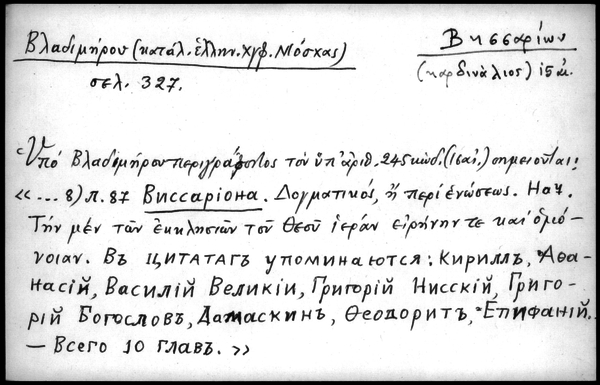 Βλαδιμήρου (κατάλ. ἑλλην. χγφ. Μόσχας)
σελ. 327.
Βησσαρίων
(καρδινάλιος) 15 αἰ.
Ὑπό Βλαδιμήρου περιγράφοντος τόν ὑπ' ἀριθ. 245 κώδ. (16 αἰ.) σημειοῦται:
«... 8) л. 87 Виссаріона. Δογματικός, ἤ περί ἑνώσεως. Нач.
Τήν μέν τῶν ἐκκλησιῶν τοῦ Θεοῦ ἱεράν εἰρήνην τε καί ὁμό-
νοιαν. Въ цитатагъ упоминаются: Кириллъ, Аѳа-
насій, Василій Великіи, Григорій Нисскій, Григо-
рій Богословъ, Дамаскинъ, Ѳеодоритъ, Епифаній.
— Всего 10 главъ. »